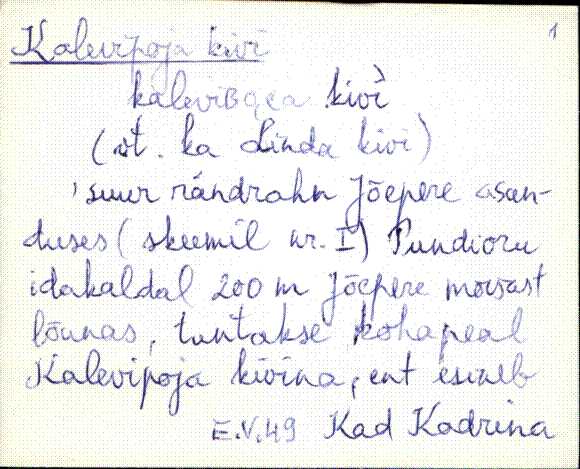 1
Kalevipoja kivi
kaleviᴃoea kivì
(vt. ka Linda kivi)
, suur rändrahn Jõepere asun-
duses (skeemil nr. I) Pundioru
idakaldal 200 m Jõepere mõisast
lõunas, tuntakse kohapeal
Kalevipoja kivina, ent esineb
E.V.49 Kad Kadrina